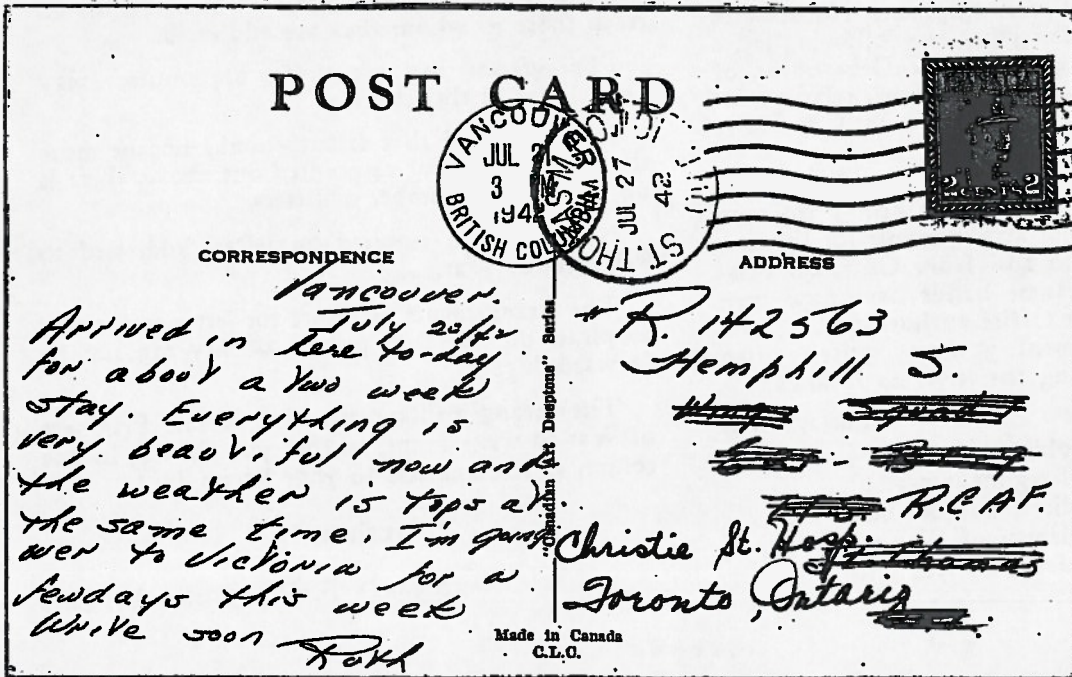 POST CARD
VANCOUVER
JUL 2
3 PM
1942
BRITISH COLUMBIA
ST. THOMAS
JUL 27
42
2 cents 2
CORRESPONDENCE
ADDRESS
Vancouver.
July /42
Arrived in here to-day
for about a two week
stay. Everything is
very beautiful now and
the weather is tops at
the same time. I'm going
over to Victoria for a
few days this week
Write soon
Ruth
"Canadian Art Deeptone" Series
# R. 142563
Hemphill S.
Wing Squad
R.C.A.F.
St. Thomas
Christie St. Hosp.
Toronto, Ontario
Made in Canada
C.L.C.